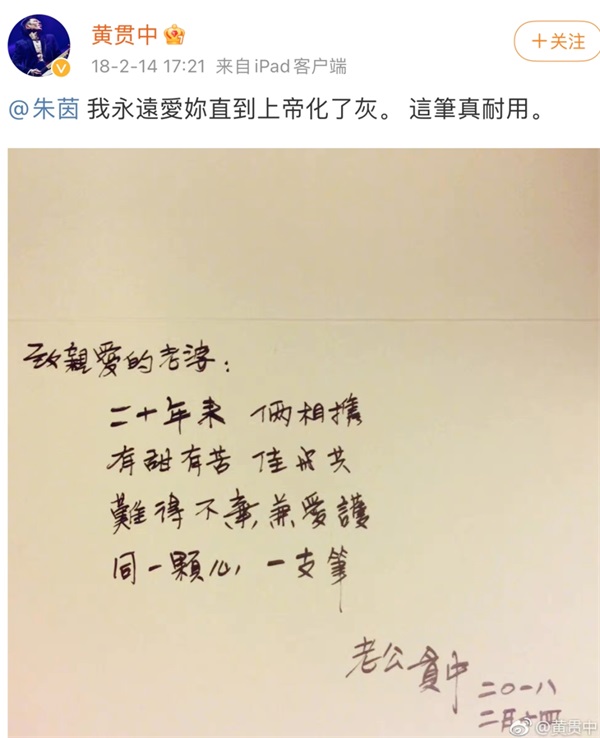 黄贯中
18-2-14 17:21 来自iPad客户端
+关注
@朱茵 我永遠愛妳直到上帝化了灰。 這筆真耐用。
致親愛的老婆:
二十年来 倆相攜
有甜有苦 佳 共
難得不棄兼愛護
同一顆心 一支筆
老公貫中
二〇一八
二月十四
@黄贯中